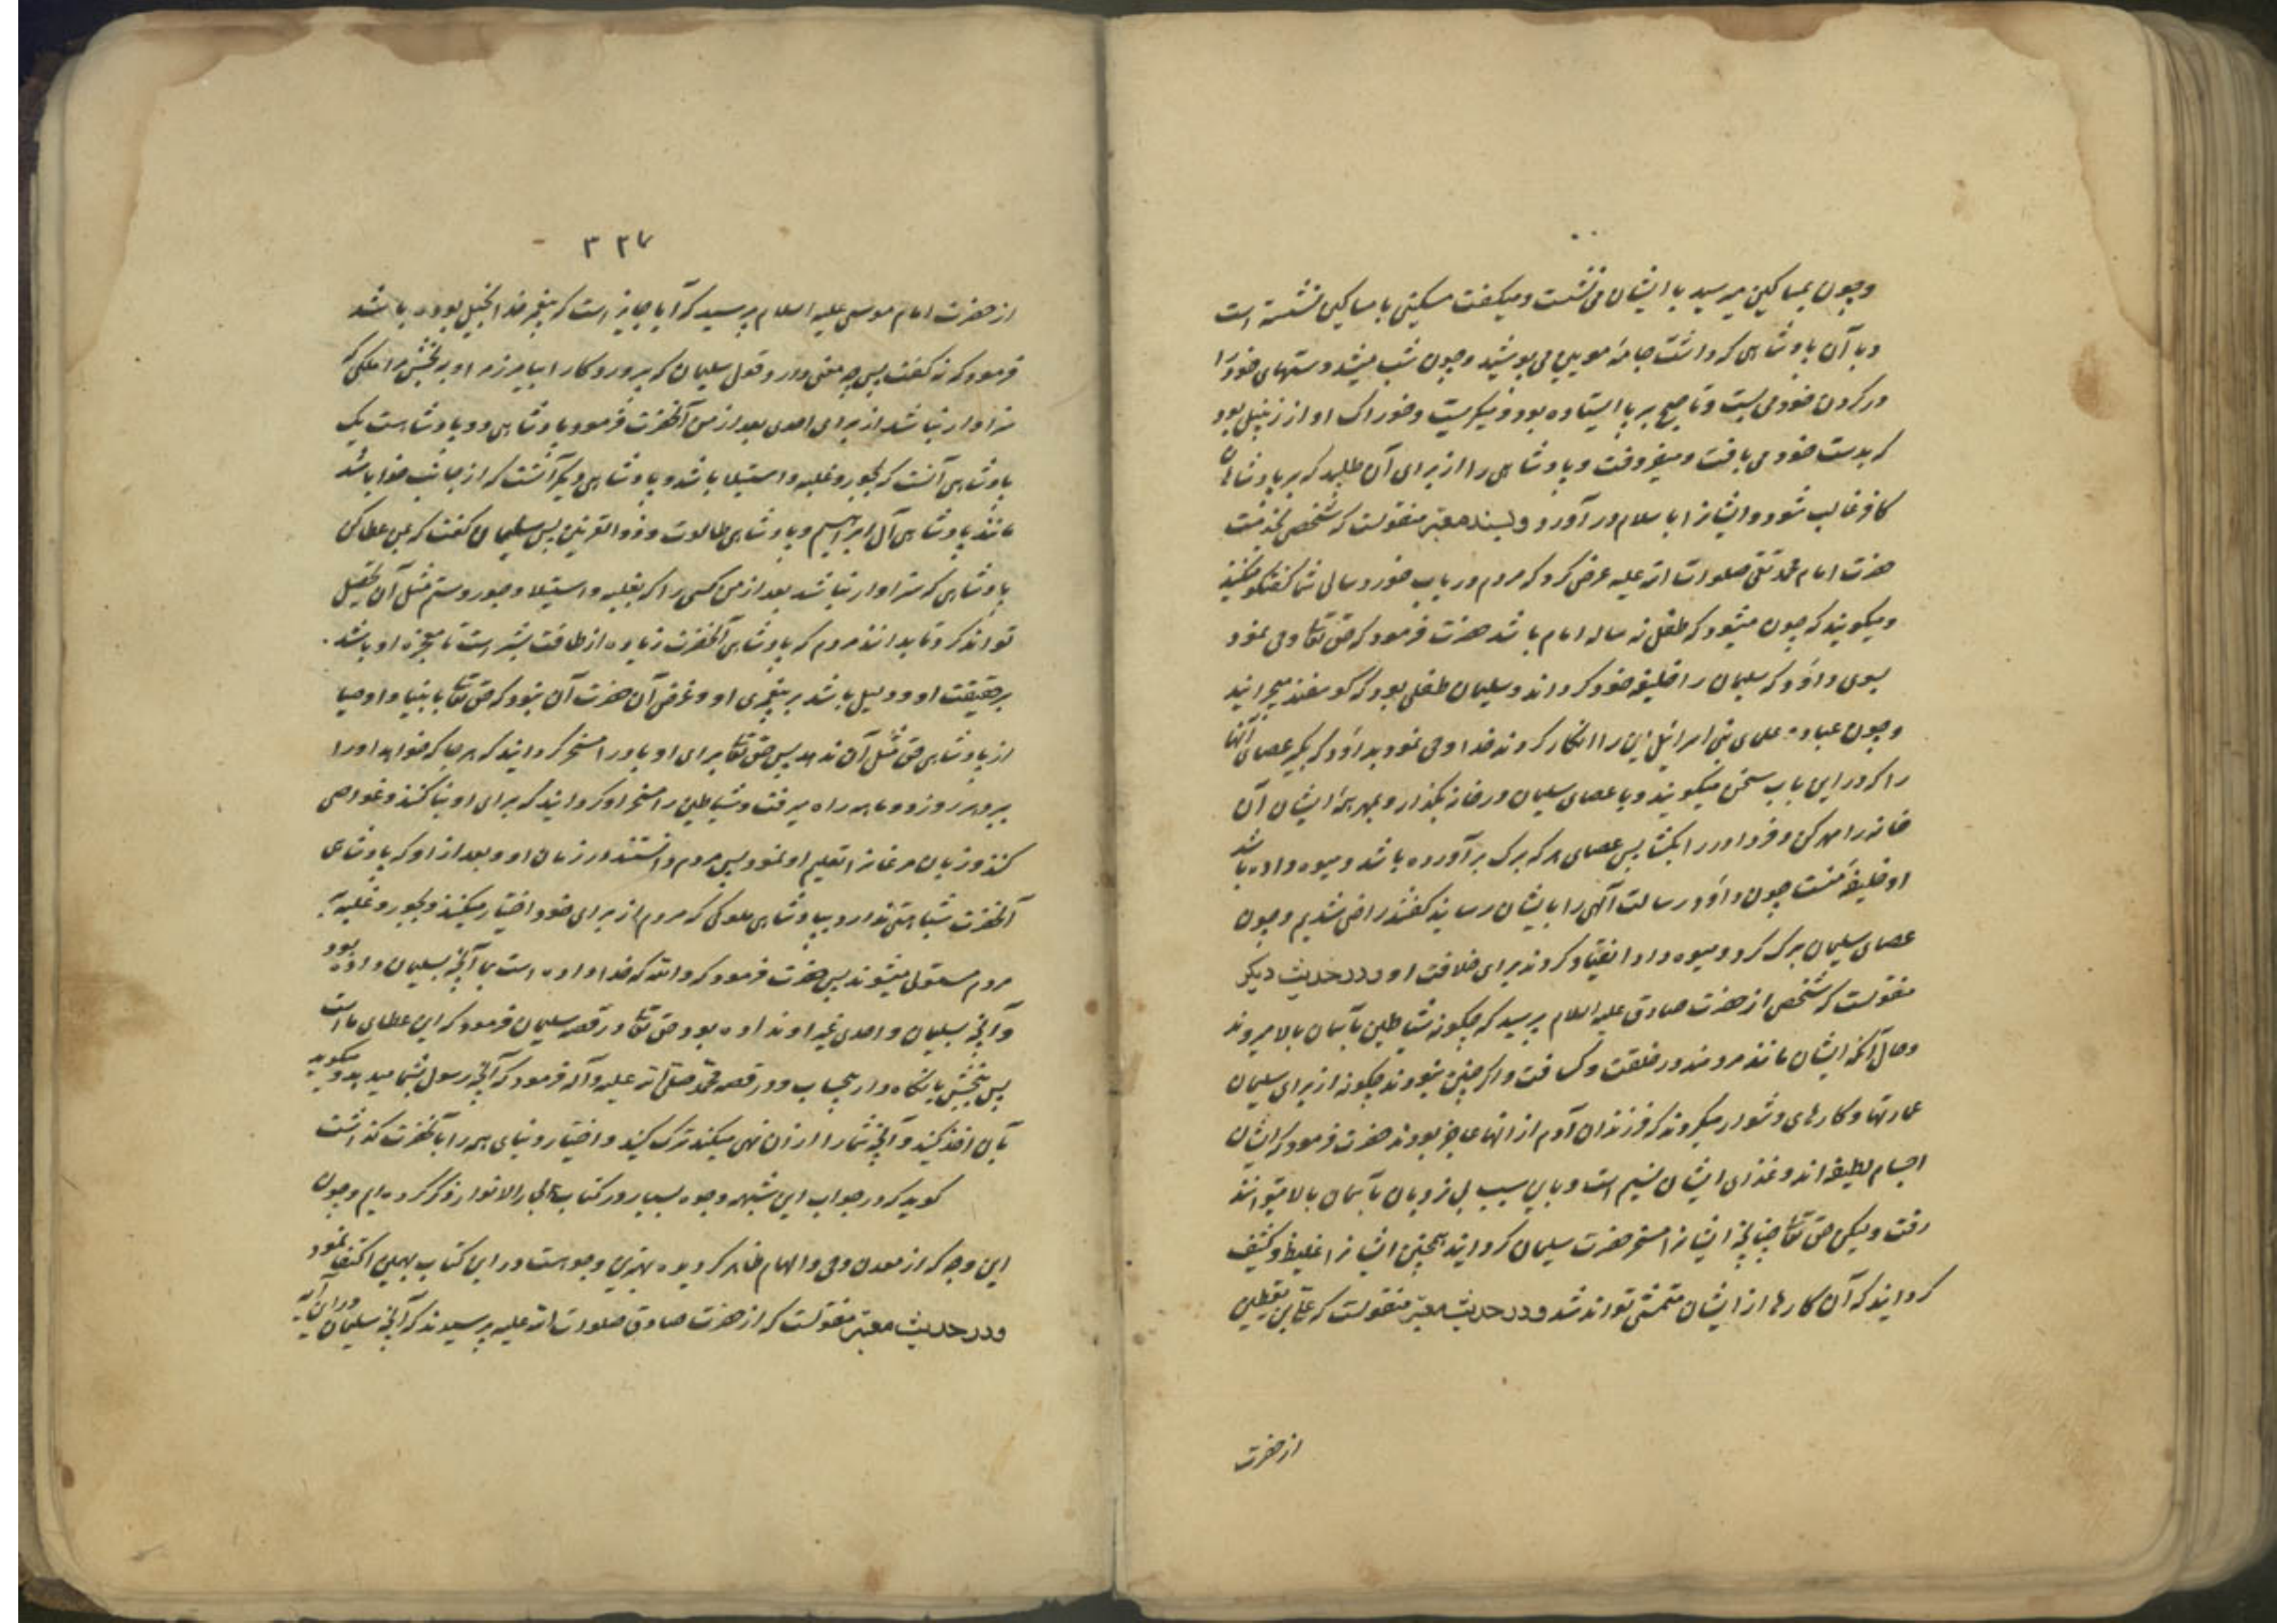 وچون بمساکین میرسید با ایشان می نشست و میگفت مسکینی با مساکین نشسته است
و با آن پادشاهی که داشت جامهٔ مویین می پوشید و چون شب میشد دستهای خود را
در گردن خود می بست و تا صبح بر پا ایستاده بود و میگریست و خوراک او از زنبیل بود
که بدست خود می بافت و میفروخت و پادشاهی را از برای آن طلبید که بر پادشاهان
کافر غالب شود و ایشانرا باسلام در آورد و بسند معتبر منقولست که شخصی بخدمت
حضرت امام محمد تقی صلوات الله علیه عرض کرد که مردم در باب خورد سالی شما گفتگو میکنند
و میگویند که چون میشود که طفل نه ساله امام باشد حضرت فرمود که حق تعالی وحی نمود
بسوی داود که سلیمان را خلیفهٔ خود گرداند و سلیمان طفلی بود که گوسفند میچرانید
و چون عباد و علمای بنی اسرائیل این را انکار کردند خدا وحی نمود بداود که بگیر عصاهای آنها
را که در این باب سخن میگویند و با عصای سلیمان در خانه بگذار و بمهر همهٔ ایشان آن
خانه را مهر کن و فردا در را بگشا پس عصای هر که برگ برآورده باشد و میوه داده باشد
او خلیفهٔ منست چون داود رسالت الهی را بایشان رسانید گفتند راضی شدیم و چون
عصای سلیمان برگ کرد و میوه داد انقیاد کردند برای خلافت او و در حدیث دیگر
منقولست که شخصی از حضرت صادق علیه السلام پرسید که چگونه شیاطین بآسمان بالا میروند
و حال آنکه ایشان مانند مردمند در خلقت و کثافت و اگر چنین نبودند چگونه از برای سلیمان
عمارتها و کارهای دشوار میکردند که فرزندان آدم از آنها عاجز بودند حضرت فرمود که ایشان
اجسام لطیفه اند و غذای ایشان نسیم است و باین سبب بی نردبان بآسمان بالا میتوانند
رفت و لیکن حق تعالی چنانچه ایشانرا مسخر حضرت سلیمان گردانید همچنین ایشانرا غلیظ و کثیف
گردانید که آن کارها از ایشان متمشی تواند شد و در حدیث معتبر منقولست که علی بن یقطین
از حضرت
۳۲۷
از حضرت امام موسی علیه السلام پرسید که آیا جایز است که پیغمبر خدا بخیل بوده باشد
فرمود که نه گفت پس چه معنی دارد قول سلیمان که پروردگارا بیامرز مرا و ببخش مرا ملکی که
سزاوار نباشد از برای احدی بعد از من آنحضرت فرمود پادشاهی دو پادشاهیست یک
پادشاهی آنست که بجور و غلبه و استیلا باشد و پادشاهی دیگر آنست که از جانب خدا باشد
مانند پادشاهی آل ابراهیم و پادشاهی طالوت و ذوالقرنین پس سلیمان گفت که بمن عطا کن
پادشاهی که سزاوار نباشد بعد از من کسی را که بغلبه و استیلا و جور و ستم مثل آن تحصیل
تواند کرد تا بدانند مردم که پادشاهی آنحضرت زیاده از طاقت بشر است تا معجزه او باشد
بر حقیقت او و دلیل باشد بر پیغمبری او و غرض آن حضرت آن نبود که حق تعالی بانبیا و اوصیا
از پادشاهی حق مثل آن ندهد پس حق تعالی برای او باد را مسخر گردانید که هر جا که خواهد او را
ببرد هر روز دو ماهه راه میرفت و شیاطین را مسخر او گردانید که برای او بنا کنند و غواصی
کنند و زبان مرغانرا تعلیم او نمود پس مردم دانستند در زمان او و بعد از او که پادشاهی
آنحضرت شباهتی ندارد بپادشاهی ملوکی که مردم از برای خود اختیار میکنند و بجور و غلبه بر
مردم مستولی میشوند پس حضرت فرمود که والله که خدا داده است بما آنچه بسلیمان داده بود
و آنچه بسلیمان و احدی غیر او نداده بود حق تعالی در قصه سلیمان فرمود که این عطای ما است
پس ببخش یا نگاه دار بیحساب و در قصه محمد صلی الله علیه و آله فرمود که آنچه رسول بشما میدهد و میگوید
بآن اخذ کنید و آنچه شما را از آن نهی میکند ترک کنید و اختیار دنیای همه را بآنحضرت گذاشت
گوید که در جواب این شبهه وجوه بسیار در کتاب بحار الانوار ذکر کرده ایم و چون
این وجه که از معدن وحی و الهام ظاهر گردیده بهترین وجوهست در این کتاب بهمین اکتفا نمود
و در حدیث معتبر منقولست که از حضرت صادق صلوات الله علیه پرسیدند که آنچه سلیمان در این آیه